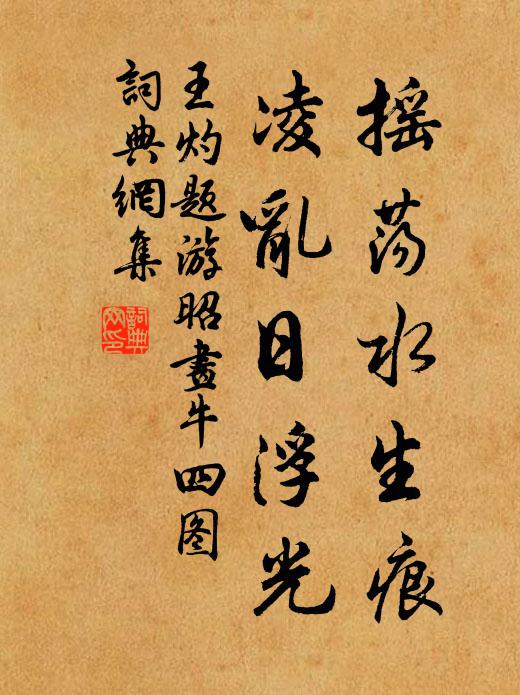 摇荡水生痕
凌亂日浮光
王灼题游昭畫牛四图
詞典網集
詞典网印